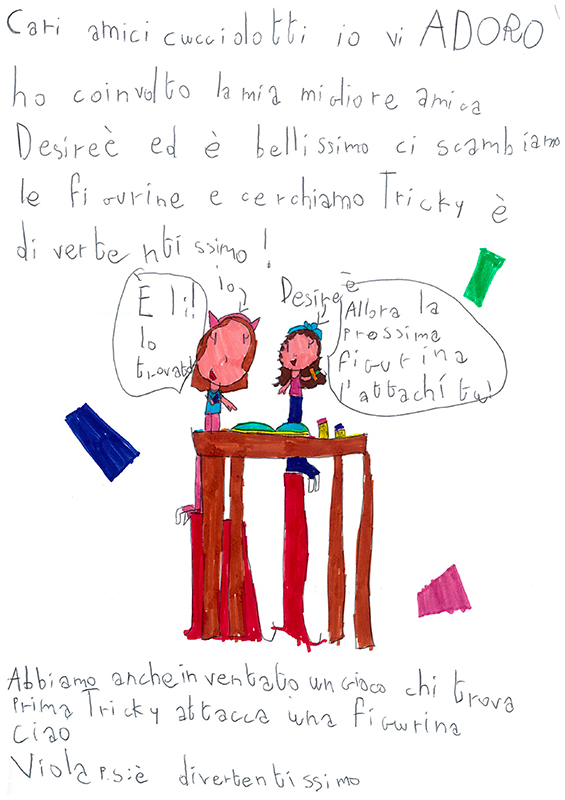 Cari amici cucciolotti io vi ADORO
ho coinvolto la mia migliore amica
Desireè ed è bellissimo ci scambiamo
le figurine e cerchiamo Tricky è
divertentissimo!
io
Desireè
È lì!
lo
trovato
Allora la
prossima
figurina
l'attachi tu!
Abbiamo anche inventato un gioco chi trova
prima Tricky attacca una figurina
ciao
Viola P.S: è divertentissimo